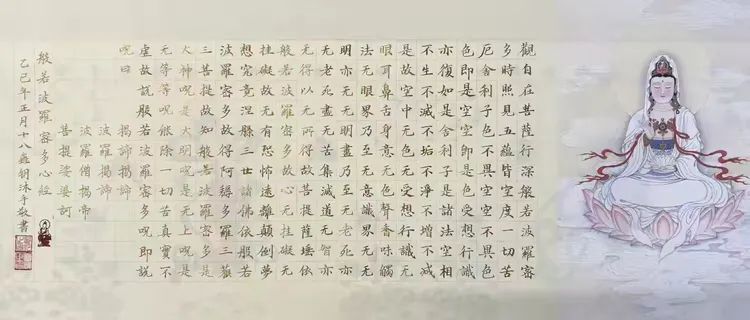 觀自在菩薩行深般若波羅蜜
多時照見五蘊皆空度一切苦
厄舍利子色不異空空不異色
色即是空空即是色受想行識
亦復如是舍利子是諸法空相
不生不滅不垢不淨不增不減
是故空中无色无受想行識无
眼耳鼻舌身意无色聲香味觸
法无眼界乃至无意識界无无
明亦无无明盡乃至无老死亦
无老死盡无苦集滅道无智亦
无得以无所得故菩提薩埵依
般若波羅蜜多故心无挂礙无
挂礙故无有恐怖遠離顛倒夢
想究竟涅槃三世諸佛依般若
波羅蜜多故得阿耨多羅三藐
三菩提故知般若波羅蜜多是
大神呪是大明呪是无上呪是
无等等呪能除一切苦真實不
虛故說般若波羅蜜多呪即說
呪曰
揭諦揭諦
波羅揭諦
波羅僧揭帝
菩提娑婆訶
般若波羅蜜多心經
乙巳年正月十八沐手敬書